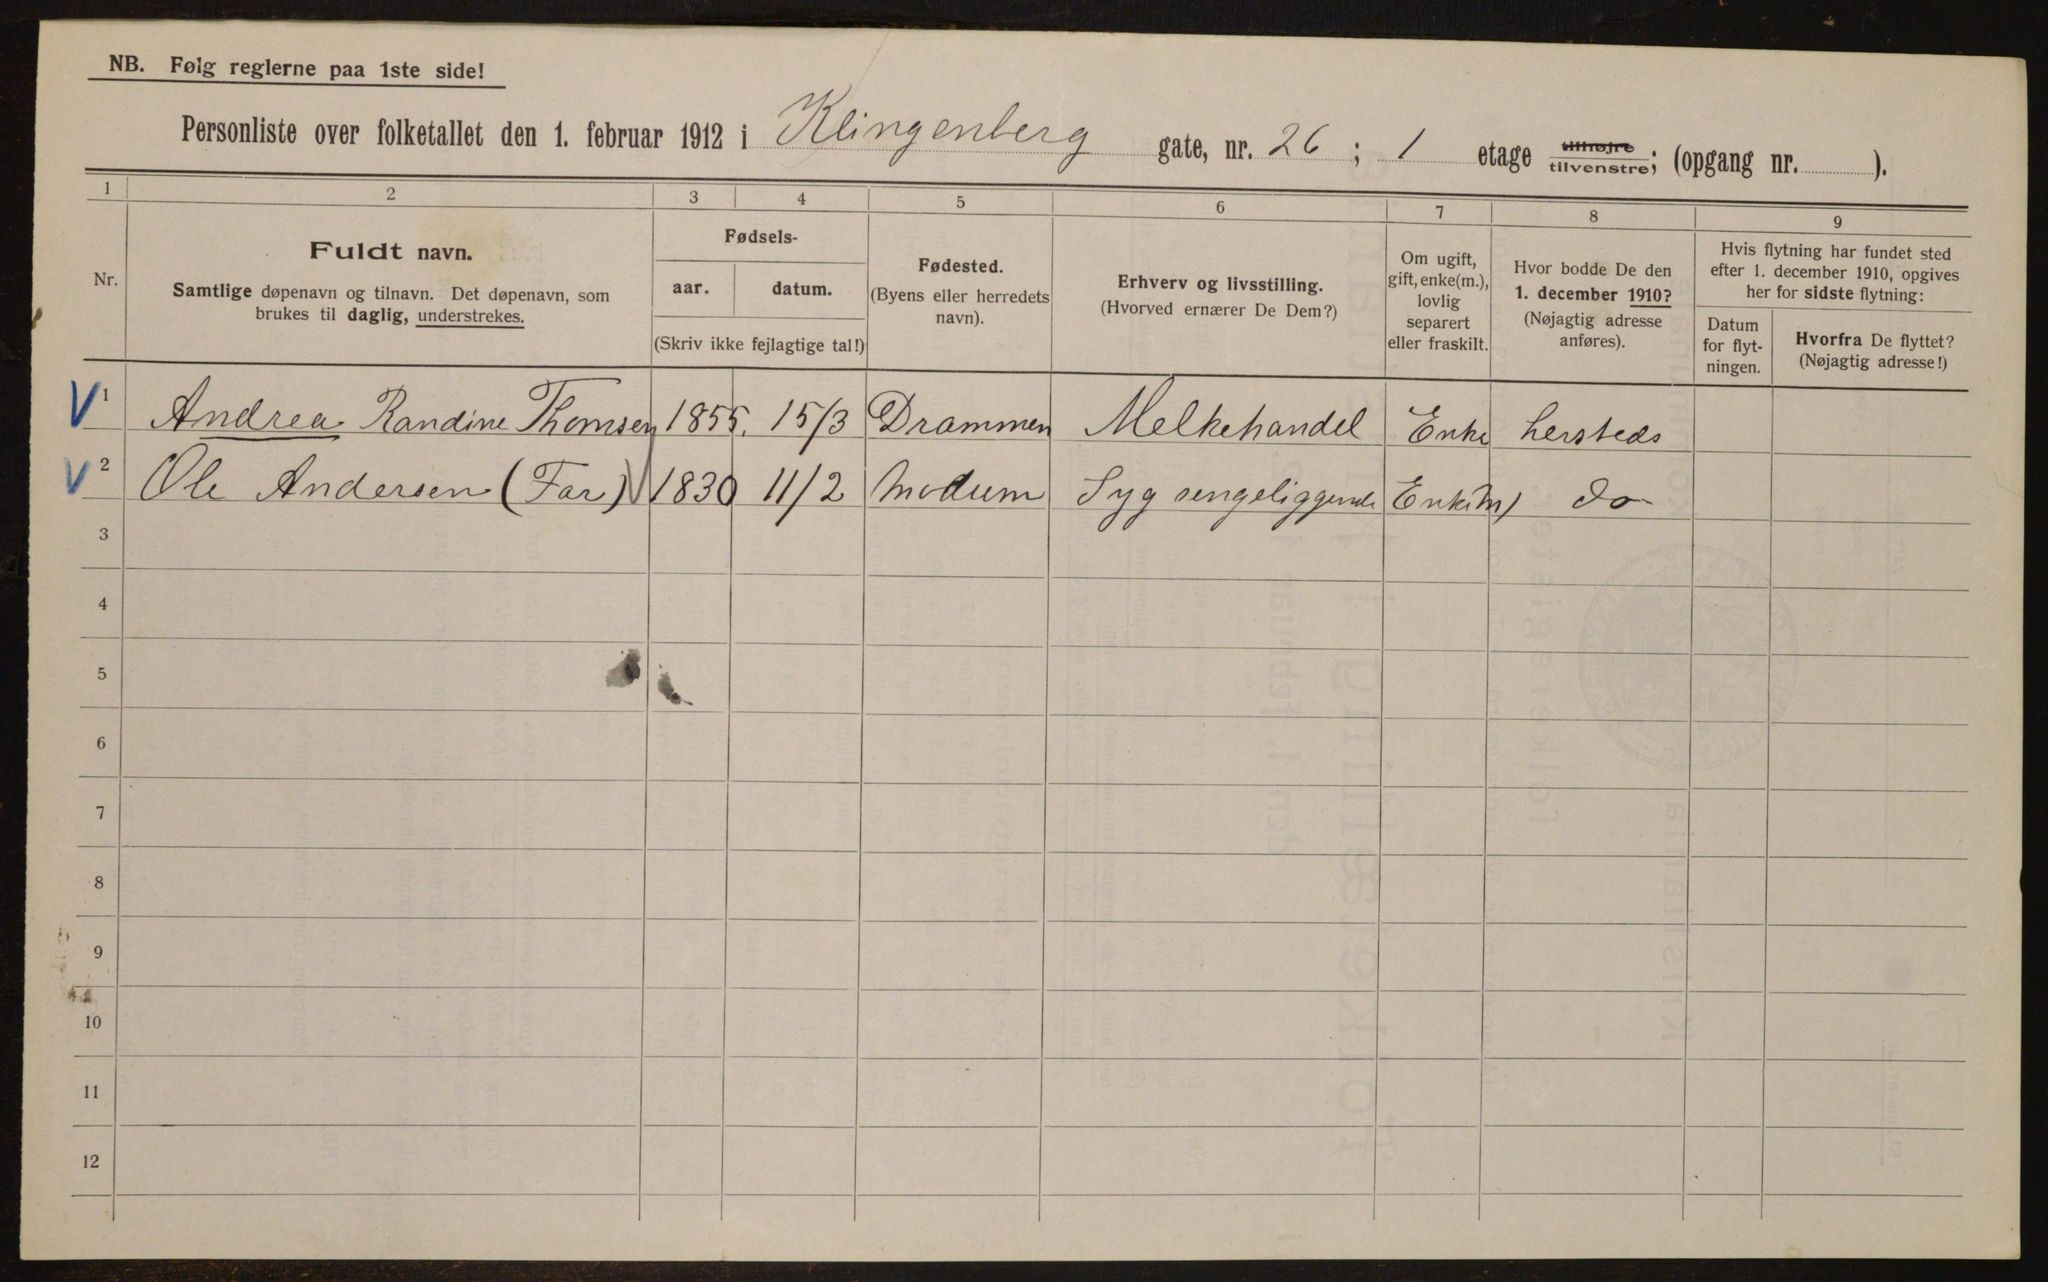 NB. Følg reglerne paa 1ste side!
Personliste over folketallet den 1. februar 1912 i Klingenberg gate, nr. 26 ; 1 etage tilhøjre tilvenstre; (opgang nr. ).
1 2 3 4 5 6 7 8 9
Nr.
Fuldt navn.
Samtlige døpenavn og tilnavn. Det døpenavn, som
brukes til daglig, understrekes.
Fødsels-
aar. datum.
(Skriv ikke fejlagtige tal!)
Fødested.
(Byens eller herredets
navn).
Erhverv og livsstilling.
(Hvorved ernærer De Dem?)
Om ugift,
gift, enke(m.),
lovlig
separert
eller fraskilt.
Hvor bodde De den
1. december 1910?
(Nøjagtig adresse
anføres).
Hvis flytning har fundet sted
efter 1. december 1910, opgives
her for sidste flytning:
Datum
for flyt-
ningen.
Hvorfra De flyttet?
(Nøjagtig adresse!)
V 1 Andrea Randine Thomsen 1855. 15/3 Drammen Melkehandel Enke hersteds
V 2 Ole Andersen (Far) V 1830 11/2 Modum Syg sengeliggende Enke(m) do
3
4
5
6
7
8
9
10
11
12